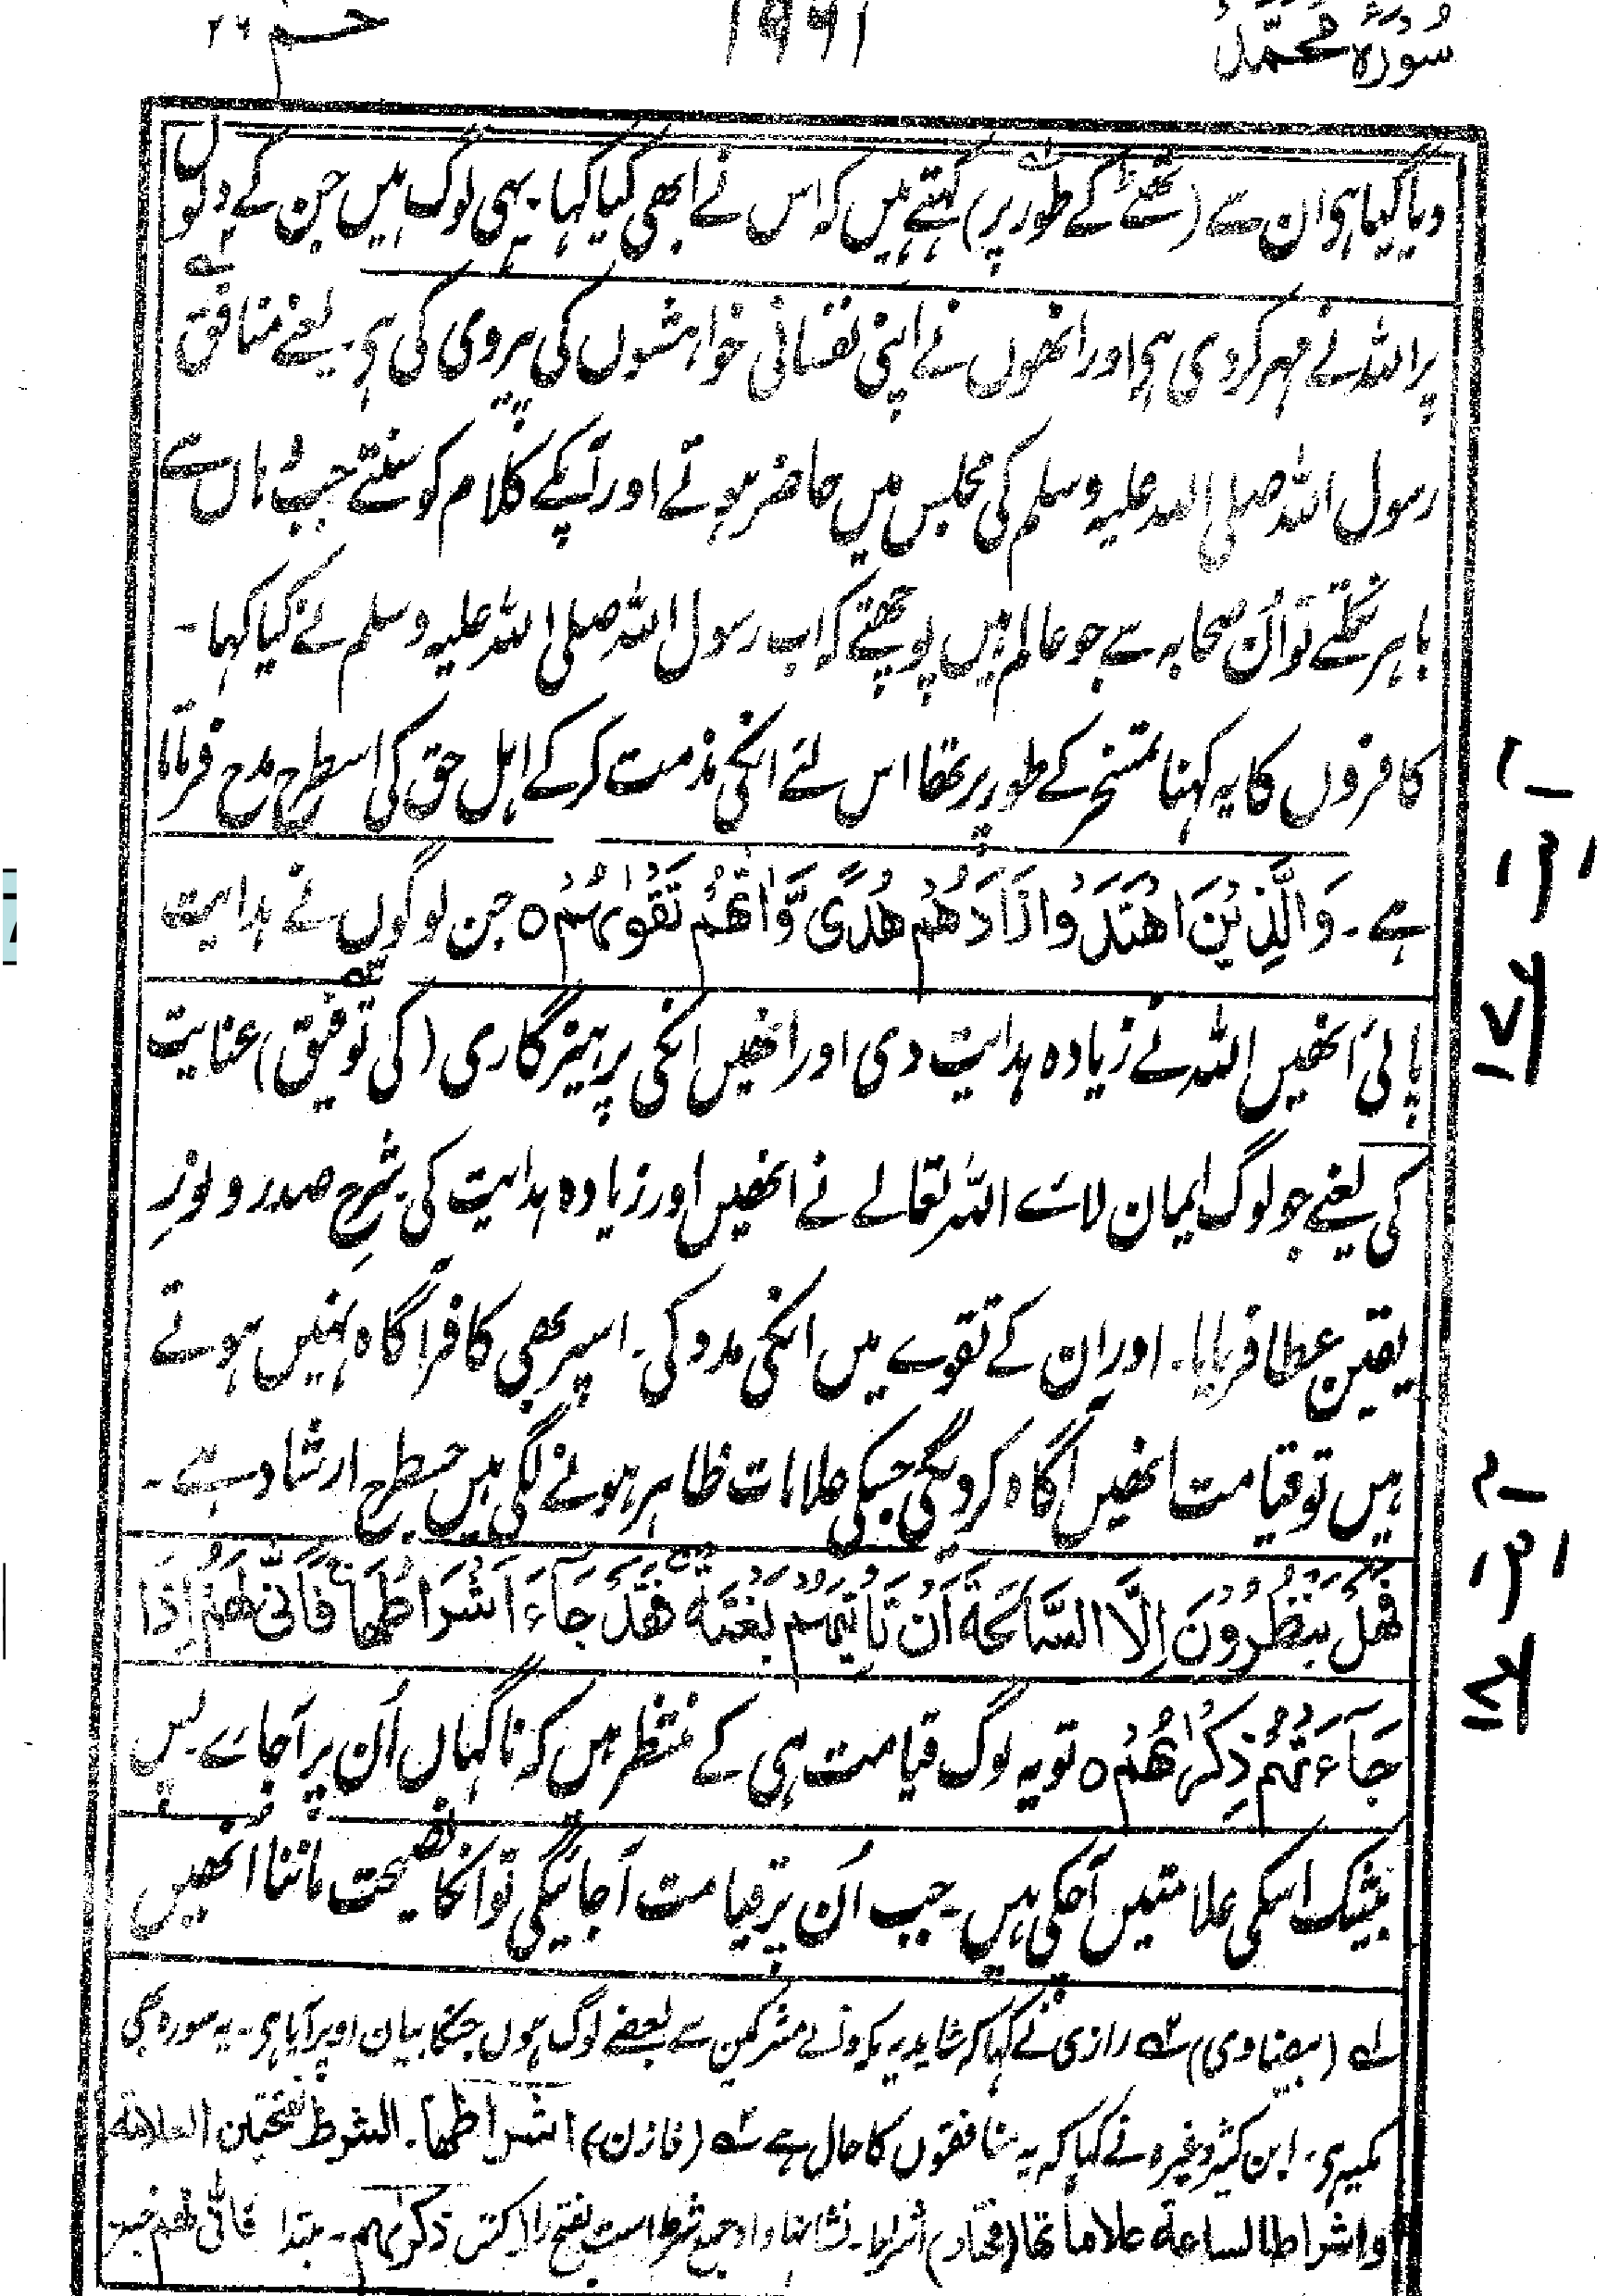 سُورَۃُ مُحَمَّد ۱۹۹۱ حٰـم ۲۶
دیا گیا ہی ان سے (ٹھٹے کے طور پر) کہتے ہیں کہ اس نے ابھی کیا کہا۔ یہی لوگ ہیں جن کے دلوں
پر اللہ نے مہر کر دی ہی اور انھوں نے اپنی نفسانی خواہشوں کی پیروی کی ہی۔ یعنے منافق
رسول اللہ صلی اللہ علیہ وسلم کی مجلس میں حاضر ہوتے اور آپکے کلام کو سنتے جب وہاں سے
باہر نکلتے تو اُن صحابہ سے جو عالم ہیں پوچھتے کہ اب رسول اللہ صلی اللہ علیہ وسلم نے کیا کہا۔
کافروں کا یہ کہنا تمسخر کے طور پر تھا اس لئے انکی مذمت کر کے اہل حق کی اسطرح مدح فرماتا
ہے۔ وَالَّذِیْنَ اهْتَدَوْا زَادَهُمْ هُدًی وَّاٰتٰهُمْ تَقْوٰىهُمْ ٥ جن لوگوں نے ہدایت
پائی اُنھیں اللہ نے زیادہ ہدایت دی اور انھیں انکی پرہیزگاری (کی توفیق) عنایت
کی یعنے جو لوگ ایمان لائے اللہ تعالے نے انھیں اور زیادہ ہدایت کی۔ شرحِ صدر و نورِ
یقین عطا فرمایا۔ اور ان کے تقوے میں انکی مدد کی۔ اسپر بھی کافر آگاہ نہیں ہوتے
ہیں تو قیامت انھیں آگاہ کردیگی جسکی علامات ظاہر ہونے لگی ہیں جسطرح ارشاد ہے۔
فَهَلْ یَنْظُرُوْنَ اِلَّا السَّاعَةَ اَنْ تَاْتِیَهُمْ بَغْتَةً ۚ فَقَدْ جَآءَ اَشْرَاطُهَا ۚ فَاَنّٰی لَهُمْ اِذَا
جَآءَتْهُمْ ذِكْرٰىهُمْ ٥ تو یہ لوگ قیامت ہی کے منتظر ہیں کہ ناگہاں اُن پر آجاے پس
بیشک اسکی علامتیں آچکی ہیں۔ جب اُن پر قیامت آجائیگی تو انکا نصیحت ماننا انھیں
؎۱ (بیضاوی) ؎۲ رازی نے کہا کہ شاید یہ مکہ والے مشرکین سے بعضے لوگ ہوں جنکا بیان اوپر آیا ہی۔ یہ سورہ بھی
مکیہ ہی۔ ابن کثیر وغیرہ نے کہا کہ یہ منافقوں کا حال ہے ؎۳ (خازن) اشراطها۔ الشرط بفتحتین العلامة
واشراط الساعة علاماتها (مختار) اشراطہا۔ نشانہا و او جمع شرط است بفتح را ذکراہم۔ مبتدا فانّٰی لهم خبر
ا
۱۷
۲